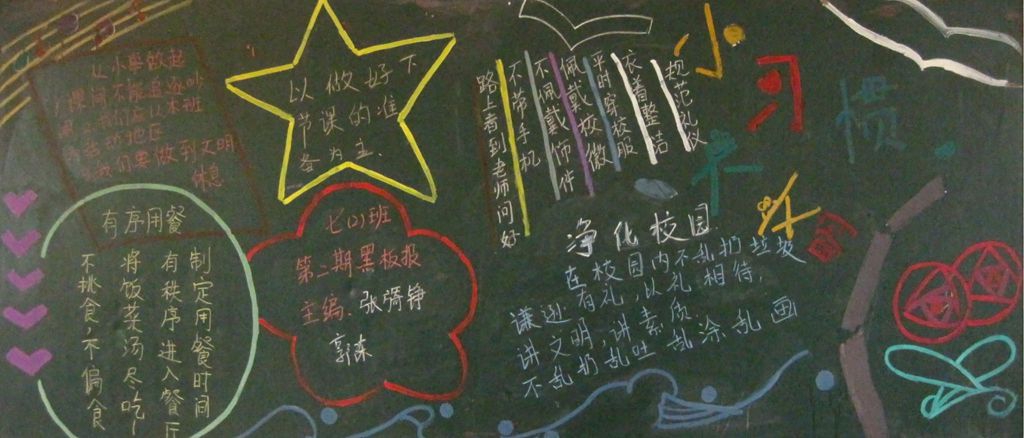 以做好下
节课的准
备为主.
有序用餐
制定用餐时间
有秩序进入餐厅
将饭菜汤尽吃
不挑食,不偏食
七(2)班
第二期黑板报
主编.张
规范礼仪
衣着整洁
平时穿校服
佩戴校徽
不佩戴饰件
不带手机
路上者到老师问好
小习惯
净化校园
在校园内不乱扔垃圾
谦逊有礼,以礼相待,
讲文明,讲素质
不乱扔乱吐 乱涂乱画
我们要做到文明